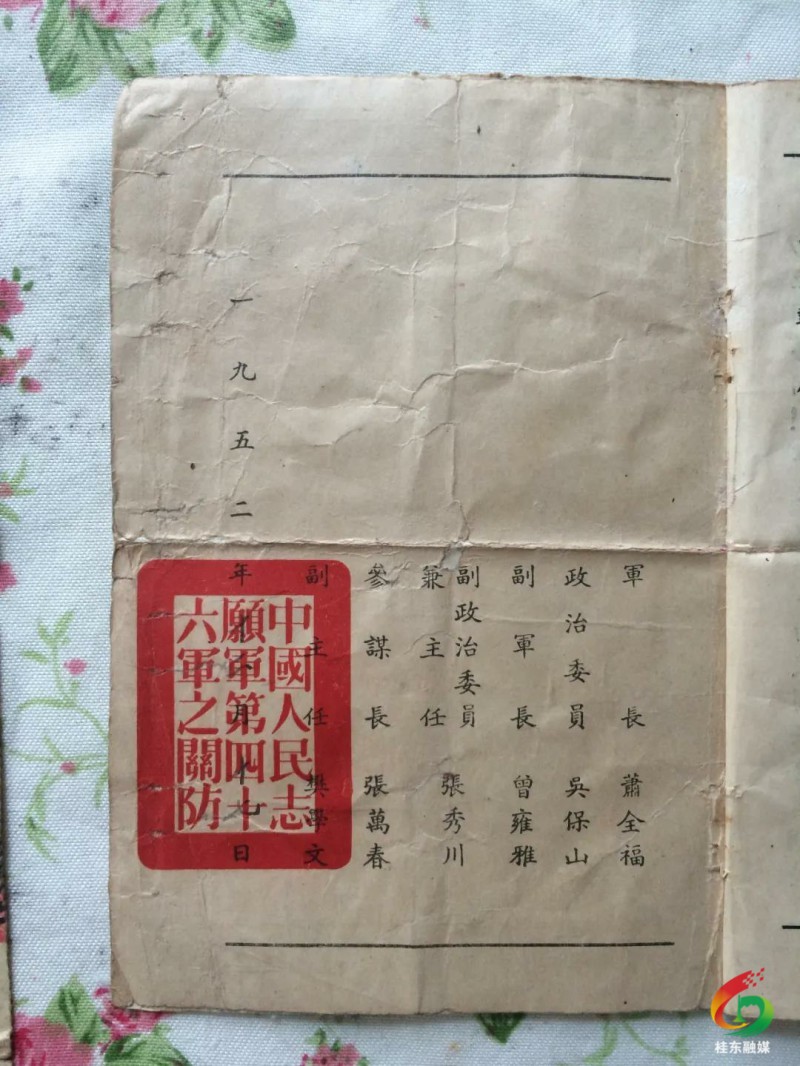 軍長 蕭全福
政治委員 吳保山
副軍長 曾雍雅
副政治委員
兼主任
張秀川
參謀長 張萬春
副主任 樊學文
一九五二年十月十七日
中國人民志
願軍第四十
六軍之關防
桂东融媒